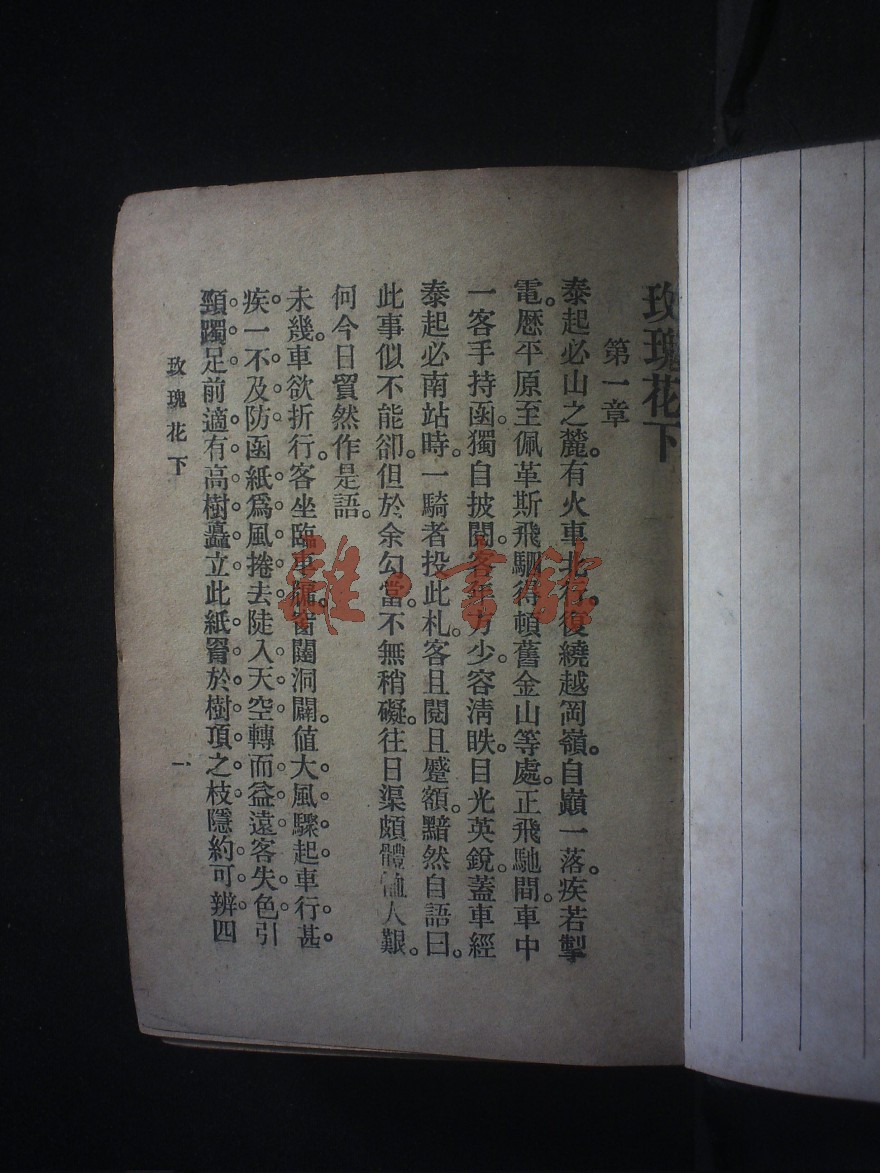 玫瑰花下
第一章
泰起必山之麓。有火車北行。復繞越岡嶺。自巔一落。疾若掣
電。歷平原至佩革斯飛馹得頓舊金山等處。正飛馳間。車中
一客手持函。獨自披閱。客年方少。容淸眣。目光英銳。蓋車經
泰起必南站時。一騎者投此札。客且閱且蹙額。黯然自語曰。
此事似不能卻。但於余勾當。不無稍礙。往日渠頗體恤人艱。
何今日貿然作是語。
未幾。車欲折行。客坐臨車牖。窗闥洞闢。値大風驟起。車行甚
疾。一不及防。函紙爲風捲去。陡入天空。轉而益遠。客失色引
頸。躅足前適有高樹矗立。此紙罥於樹頂之枝。隱約可辨。四
玫瑰花下
一
雜·書館